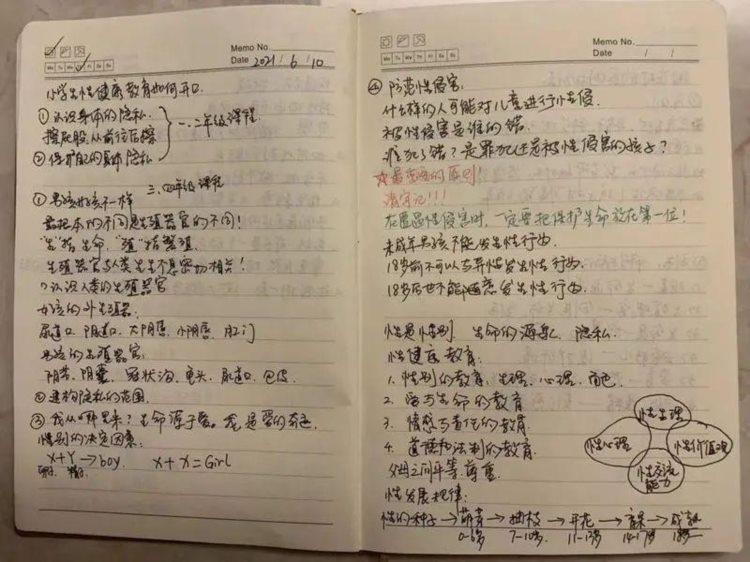 Memo No.
Mo Tu We Th Fr Sa Su
Date 2021 / 6 / 10
小学生性健康教育如何开口
① 认识身体的隐私.
擦屁股从前往后擦
② 保护自己的身体隐私
一、二年级课程
三、四年级课程
① 男孩女孩不一样
最根本的不同是生殖器官的不同!
“生”指生命,“殖”指繁殖.
生殖器官与人类生生不息密切相关!
认识人类的生殖器官
女孩的外生殖器.
尿道口、阴道口、大阴唇、小阴唇、肛门
男孩的生殖器官:
阴茎、阴囊、冠状沟、龟头、尿道口、包皮
② 建构隐私的范围.
③ 我从哪里来? 生命源于爱。我是爱的奇迹.
性别的决定因素:
X+Y→boy X+X=Girl
Memo No.
Mo Tu We Th Fr Sa Su
Date / /
④ 防范性侵害.
什么样的人可能对儿童进行性侵.
被性侵害是谁的错.
谁犯了错? 是罪犯还是被性侵害的孩子?
☆最重要的原则
请牢记!!!
在遭遇性侵害时,一定要把保护生命放在第一位!
未成年男孩不能发生性行为
18岁前不可以与异性发生性行为.
18岁后也不能随意发生性行为.
性是性别、生命的源泉、隐私.
性健康教育:
1. 性别的教育、生理、心理、而已.
2. 爱与生命的教育
3. 情感与责任的教育.
4. 道德和法制的教育.
父母之间平等.尊重
性生理
性心理
性价值观
性交流能力
性发展规律:
性的种子→萌芽→抽枝→开花→结果→成熟
0-6岁 7-10岁 11-13岁 14-17岁 18岁